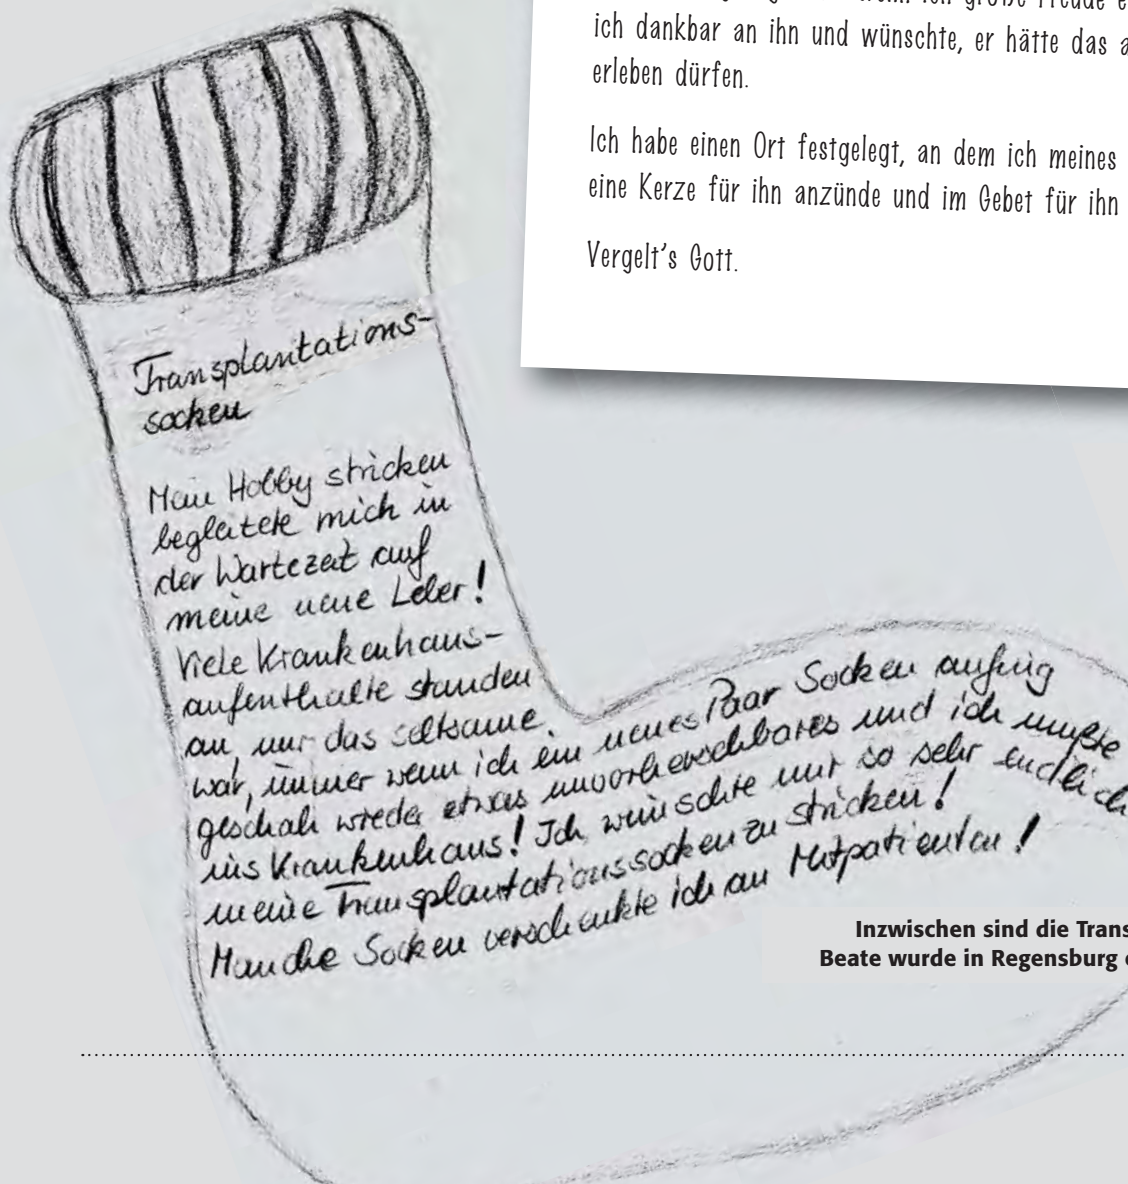 ich dankbar an ihn und wünschte, er hätte das
erleben dürfen.
Ich habe einen Ort festgelegt, an dem ich meines
eine Kerze für ihn anzünde und im Gebet für ihn
Vergelt's Gott.
Transplantations-
socken
Mein Hobby stricken
begleitete mich in
der Wartezeit auf
meine neue Leber!
Viele Krankenhaus-
aufenthalte standen
an, nur das seltsame
war, immer wenn ich ein neues Paar Socken anfing
geschah wieder etwas unvorhersehbares und ich mußte
ins Krankenhaus! Ich wünschte mir so sehr endlich
meine Transplantationssocken zu stricken!
Manche Socken verschenkte ich an Mitpatienten!
Inzwischen sind die Trans
Beate wurde in Regensburg